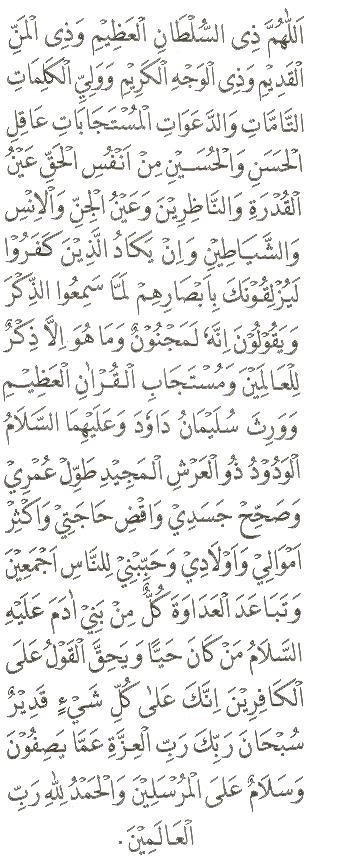 اَللّٰهُمَّ ذِى السُّلْطَانِ الْعَظِيْمِ وَذِى الْمَنِّ
الْقَدِيْمِ وَذِى الْوَجْهِ الْكَرِيْمِ وَوَلِيِّ الْكَلِمَاتِ
التَّامَّاتِ وَالدَّعَوَاتِ الْمُسْتَجَابَاتِ عَاقِلِ
الْحَسَنِ وَالْحُسَيْنِ مِنْ اَنْفُسِ الْحَقِّ عَيْنُ
الْقُدْرَةِ وَالنَّاظِرِيْنَ وَعَيْنُ الْجِنِّ وَالْاِنْسِ
وَالشَّيَاطِيْنِ وَاِنْ يَكَادُ الَّذِيْنَ كَفَرُوْا
لَيُزْلِقُوْنَكَ بِاَبْصَارِهِمْ لَمَّا سَمِعُوا الذِّكْرَ
وَيَقُوْلُوْنَ اِنَّهُ لَمَجْنُوْنٌ وَمَا هُوَ اِلَّا ذِكْرٌ
لِلْعَالَمِيْنَ وَمُسْتَجَابِ الْقُرْاٰنِ الْعَظِيْمِ
وَوَرِثَ سُلَيْمَانُ دَاوٗدَ وَعَلَيْهِمَا السَّلَامُ
الْوَدُوْدُ ذُو الْعَرْشِ الْمَجِيْدِ طَوِّلْ عُمْرِيْ
وَصَحِّحْ جَسَدِيْ وَاقْضِ حَاجَتِيْ وَاَكْثِرْ
اَمْوَالِيْ وَاَوْلَادِيْ وَحَبِّبْنِيْ لِلنَّاسِ اَجْمَعِيْنَ
وَتَبَاعَدِ الْعَدَاوَةَ كُلَّهَا مِنْ بَنِيْ اٰدَمَ عَلَيْهِ
السَّلَامُ مَنْ كَانَ حَيًّا وَيَحِقَّ الْقَوْلُ عَلَى
الْكَافِرِيْنَ اِنَّكَ عَلٰى كُلِّ شَيْءٍ قَدِيْرٌ
سُبْحَانَ رَبِّكَ رَبِّ الْعِزَّةِ عَمَّا يَصِفُوْنَ
وَسَلَامٌ عَلَى الْمُرْسَلِيْنَ وَالْحَمْدُ لِلّٰهِ رَبِّ
الْعَالَمِيْنَ.